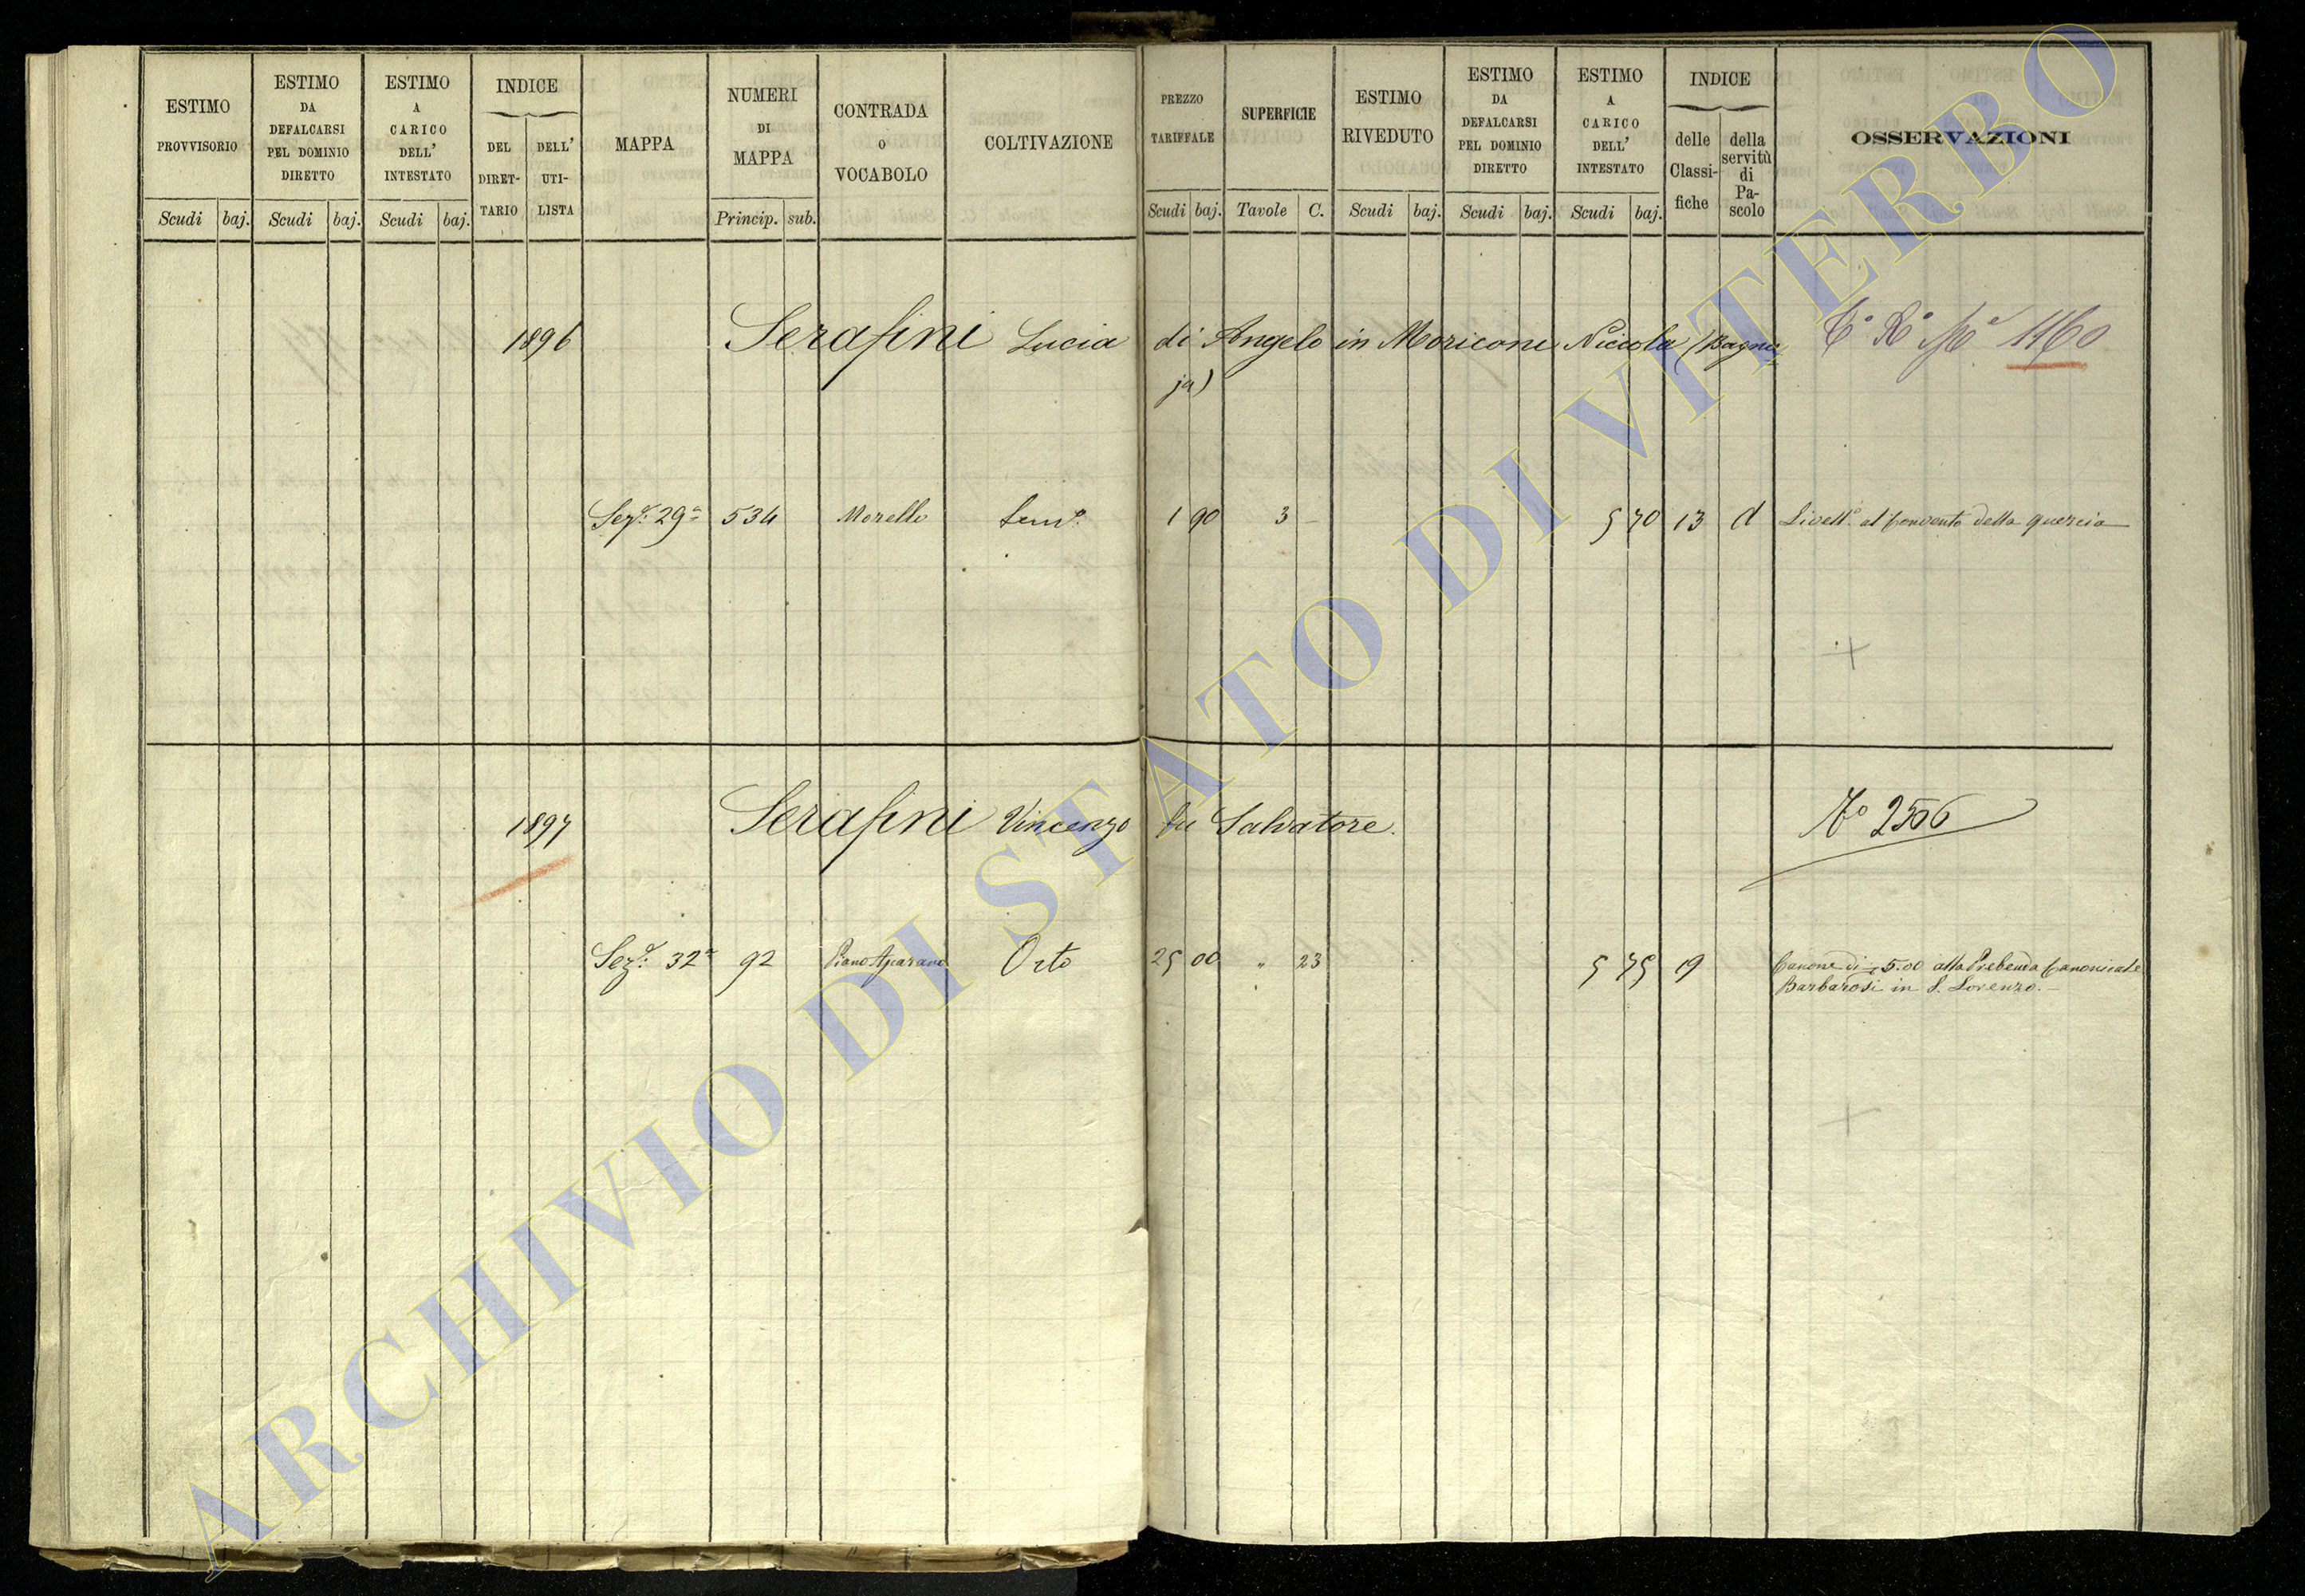 ESTIMO PROVVISORIO
Scudi baj.
ESTIMO DA DEFALCARSI PEL DOMINIO DIRETTO
Scudi baj.
ESTIMO A CARICO DELL' INTESTATO
Scudi baj.
INDICE
DEL DIRET-TARIO
DELL' UTI-LISTA
MAPPA
NUMERI DI MAPPA
Princip. sub.
CONTRADA o VOCABOLO
COLTIVAZIONE
PREZZO TARIFFALE
Scudi baj.
SUPERFICIE
Tavole C.
ESTIMO RIVEDUTO
Scudi baj.
ESTIMO DA DEFALCARSI PEL DOMINIO DIRETTO
Scudi baj.
ESTIMO A CARICO DELL' INTESTATO
Scudi baj.
INDICE
delle Classi-fiche
della servitù di Pa-scolo
OSSERVAZIONI
1896 Serafini Lucia di Angelo in Moricone Niccola (Bagna
ja) 1160
Seze. 29a 534 Morello Semo. 1 90 3 – 5 70 13 d Livello. al Convento della Quercia
1897 Serafini Vincenzo fu Salvatore. No 2506
Sezе. 32a 92 Orto 25 00 " 23 5 75 19 Canone di 5.00 alla Prebenda Canonicale
Barbarosi in S. Lorenzo.
ARCHIVIO DI STATO DI VITERBO